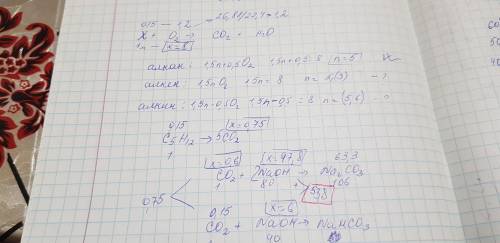 0,15 — 1,2 = 26,88/22,4 = 1,2
X + O₂ → CO₂ + H₂O
1 — x=8
алкан: 1,5n+0,5O₂ 1,5n+0,5=8 n=5
алкен: 1,5nO₂ 1,5n=8
алкин: 1,5n-0,5O₂ 1,5n-0,5=8
0,15 x=0,75
C₅H₁₂ → 5CO₂
1
x=0,6 x=47,8 63,3
CO₂ + 2NaOH → Na₂CO₃
1 80 106
0,75 53,8
0,15 x=6
CO₂ + NaOH → NaHCO₃
40
60
50
40